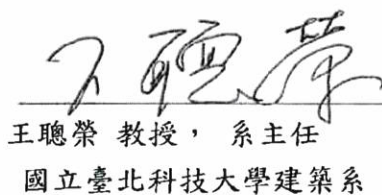 王聰榮
王聰榮 教授， 系主任
國立臺北科技大學建築系